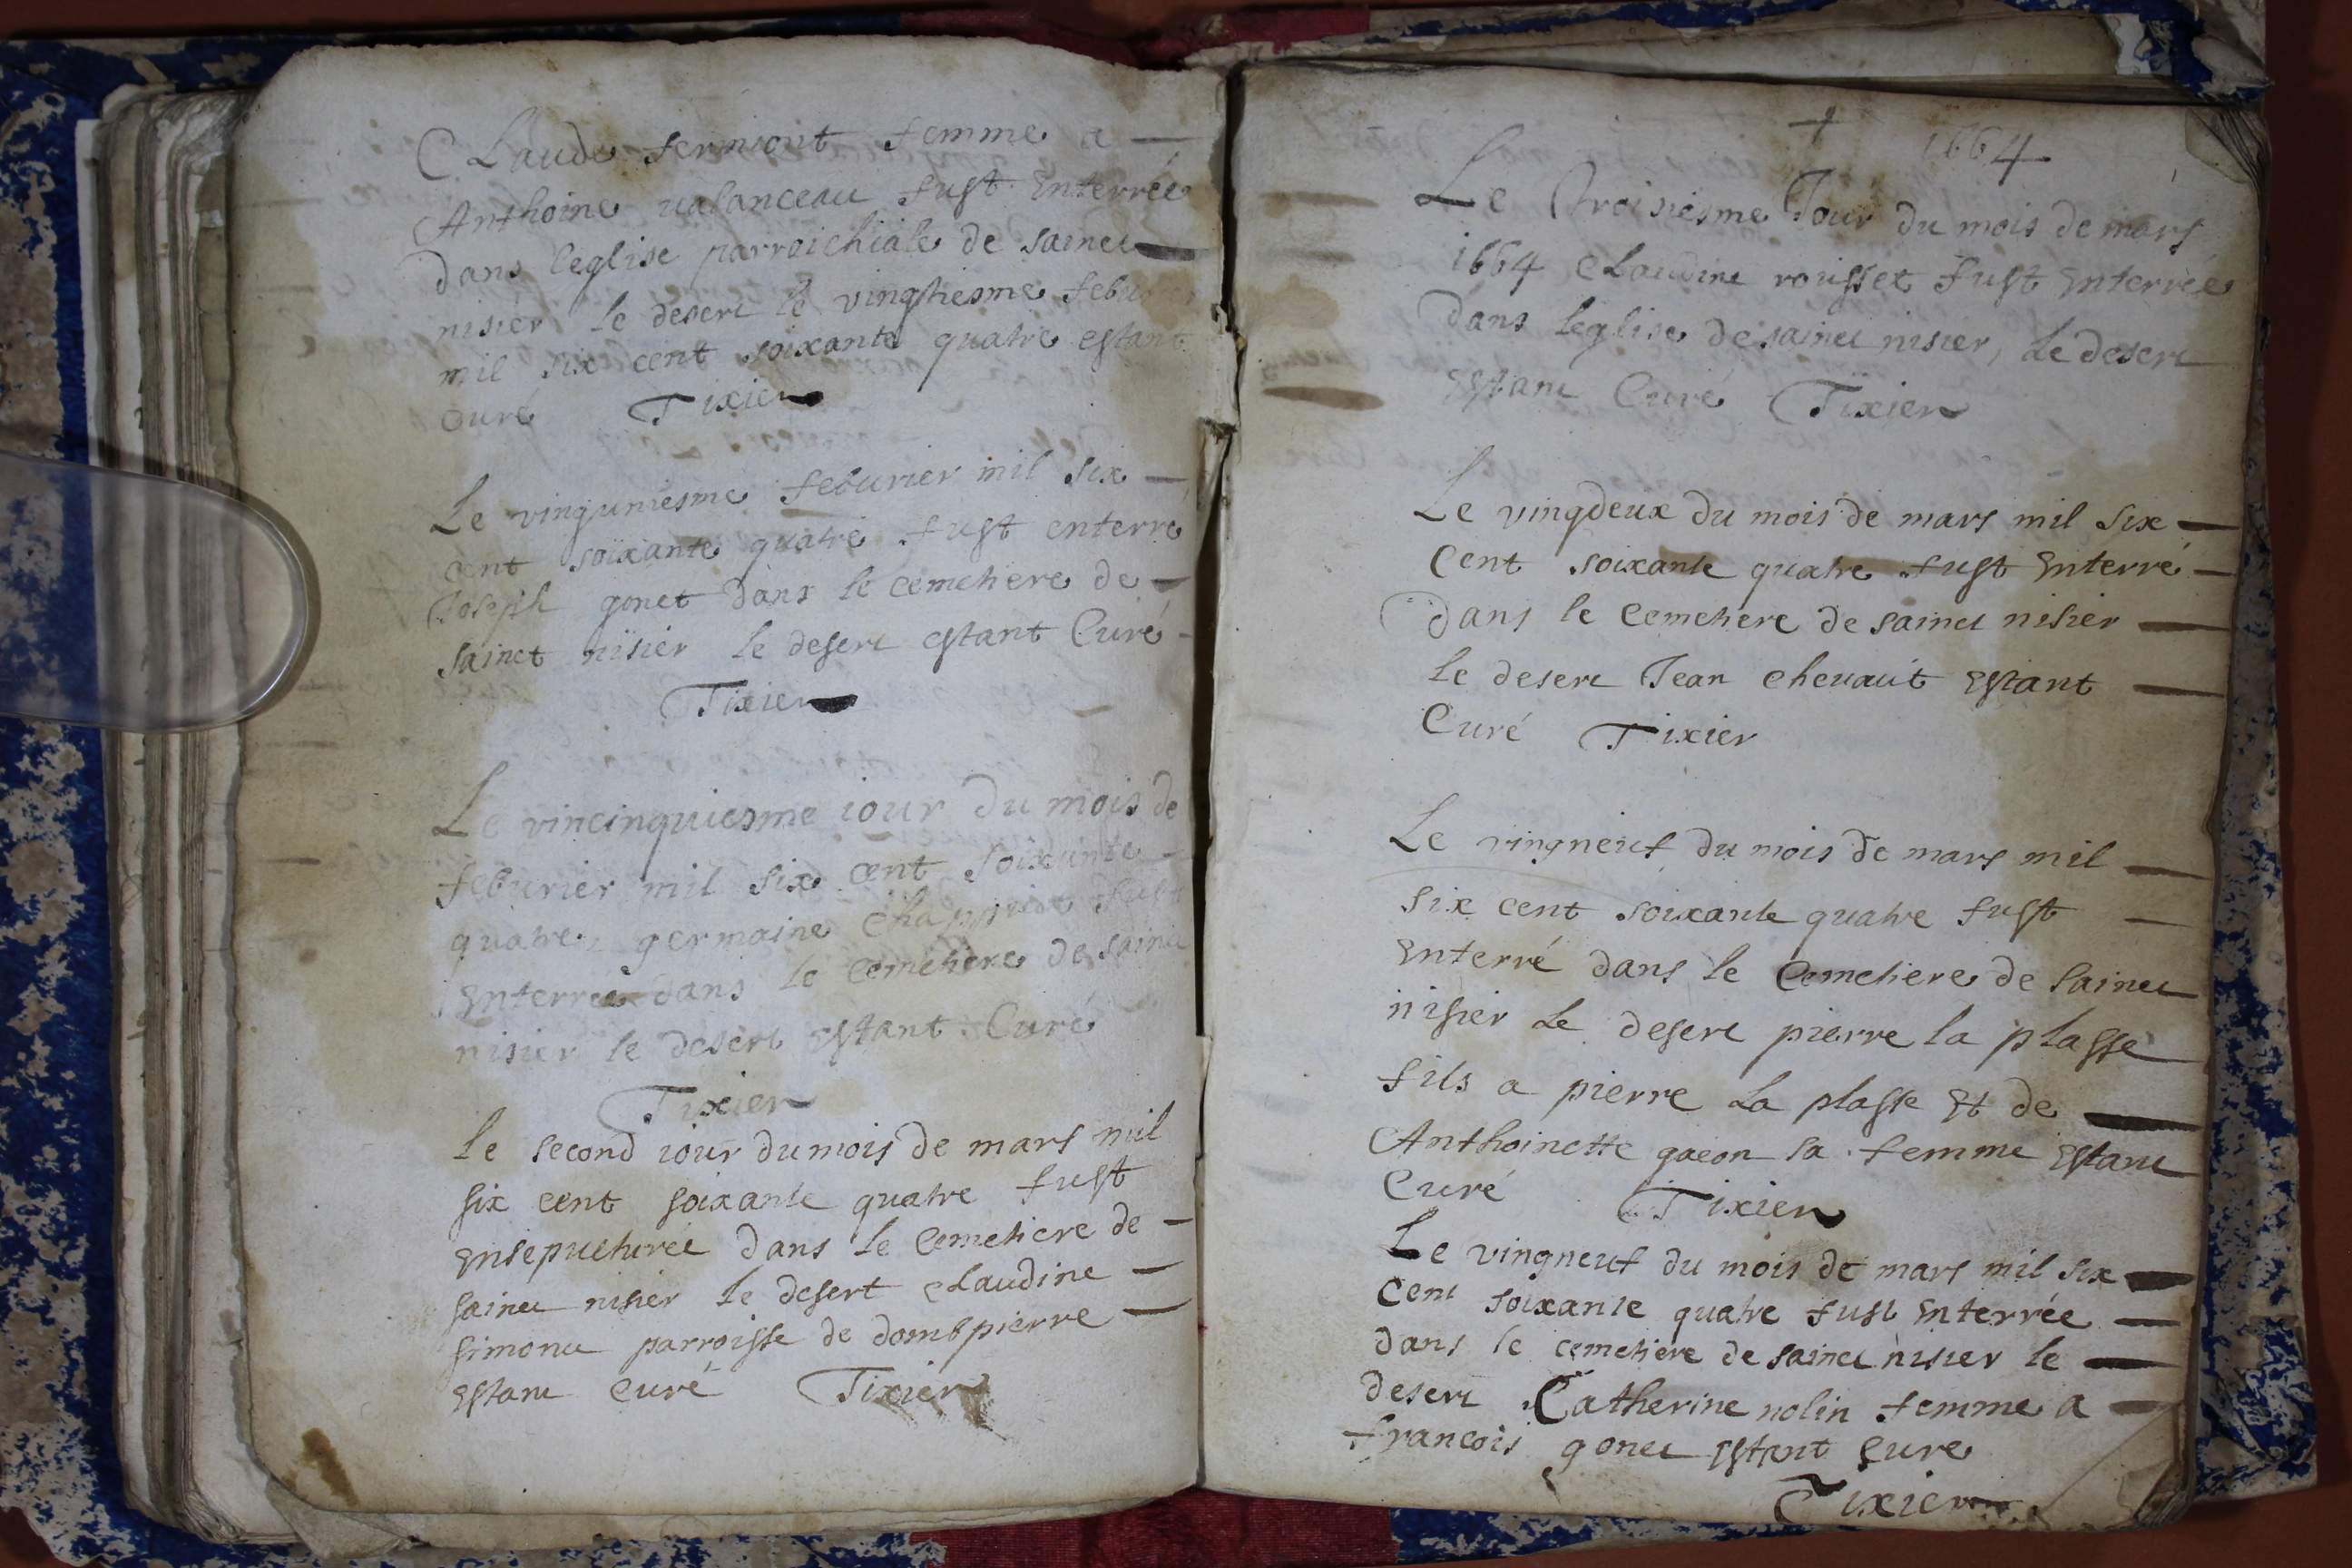 Claude fermont femme a
Anthoine valanceau fust Enterrée
dans l'eglise parroichiale de sainct
nisier le desert le vingtiesme feburier
mil six cent soixante quatre estant
curé Tixier
Le vinguniesme feburier mil six
cent soixante quatre fust enterré
Joseph gonet dans le cemetiere de
sainct nisier le desert estant Curé
Tixier
Le vincinquiesme iour du mois de
feburier mil six cent soixante
quatre germaine fust
Enterrée dans le cemetiere de sainct
nisier le desert Estant Curé
Tixier
le second iour du mois de mars mil
six cent soixante quatre fust
Ensepulturée dans le Cemetiere de
sainct nisier le desert claudine
simonet parroisse de dombpierre
Estant curé Tixier
1664
Le Troisiesme Jour du mois de mars
1664 claudine rousset fust Enterrée
dans leglise de sainct nisier, Le desert
Estant Curé Tixier
Le vingdeux du mois de mars mil six
Cent soixante quatre fust Enterré
dans le Cemetiere de sainct nisier
le desert Jean chevaut Estant
Curé Tixier
Le vingneuf du mois de mars mil
six cent soixante quatre fust
Enterré dans le Cemetiere de sainct
nisier Le desert pierre la plasse
fils a pierre La plasse Et de
Anthoinette gaeon sa femme Estant
Curé Tixier
Le vingneuf du mois de mars mil six
Cent soixante quatre fust Enterrée
dans le cemetiere de sainct nisier le
desert Catherine nolin femme a
francois gonet Estant Cure
Tixier